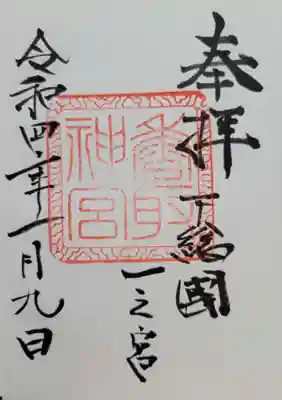 奉拝
下総國
一之宮
香取
神宮
令和四年一月九日